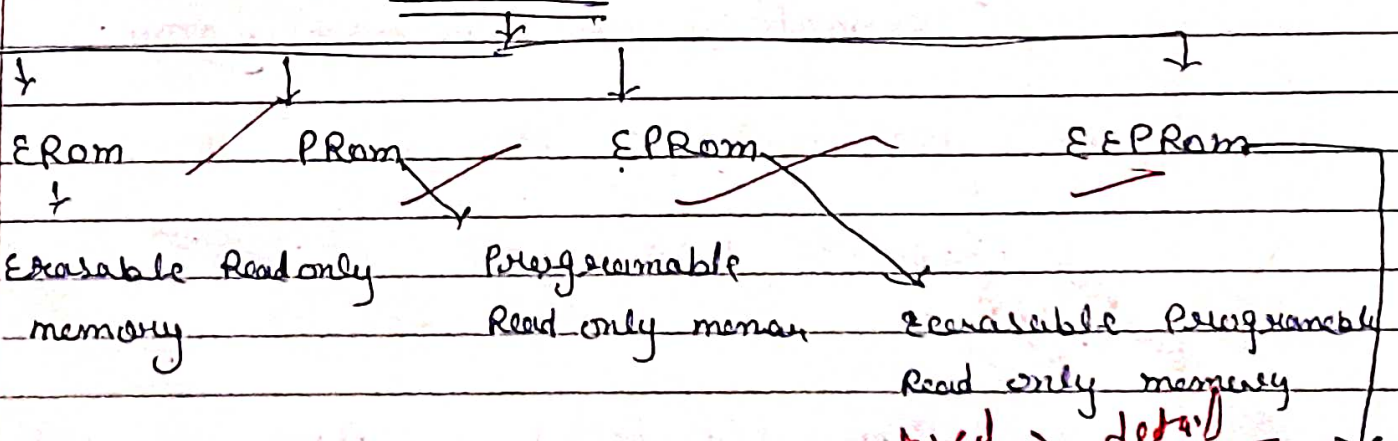 ERom PRom EPRom EEPRom
Erasable Read only Programable
memory Read only memory Erasable Programable
Read only memory
detail